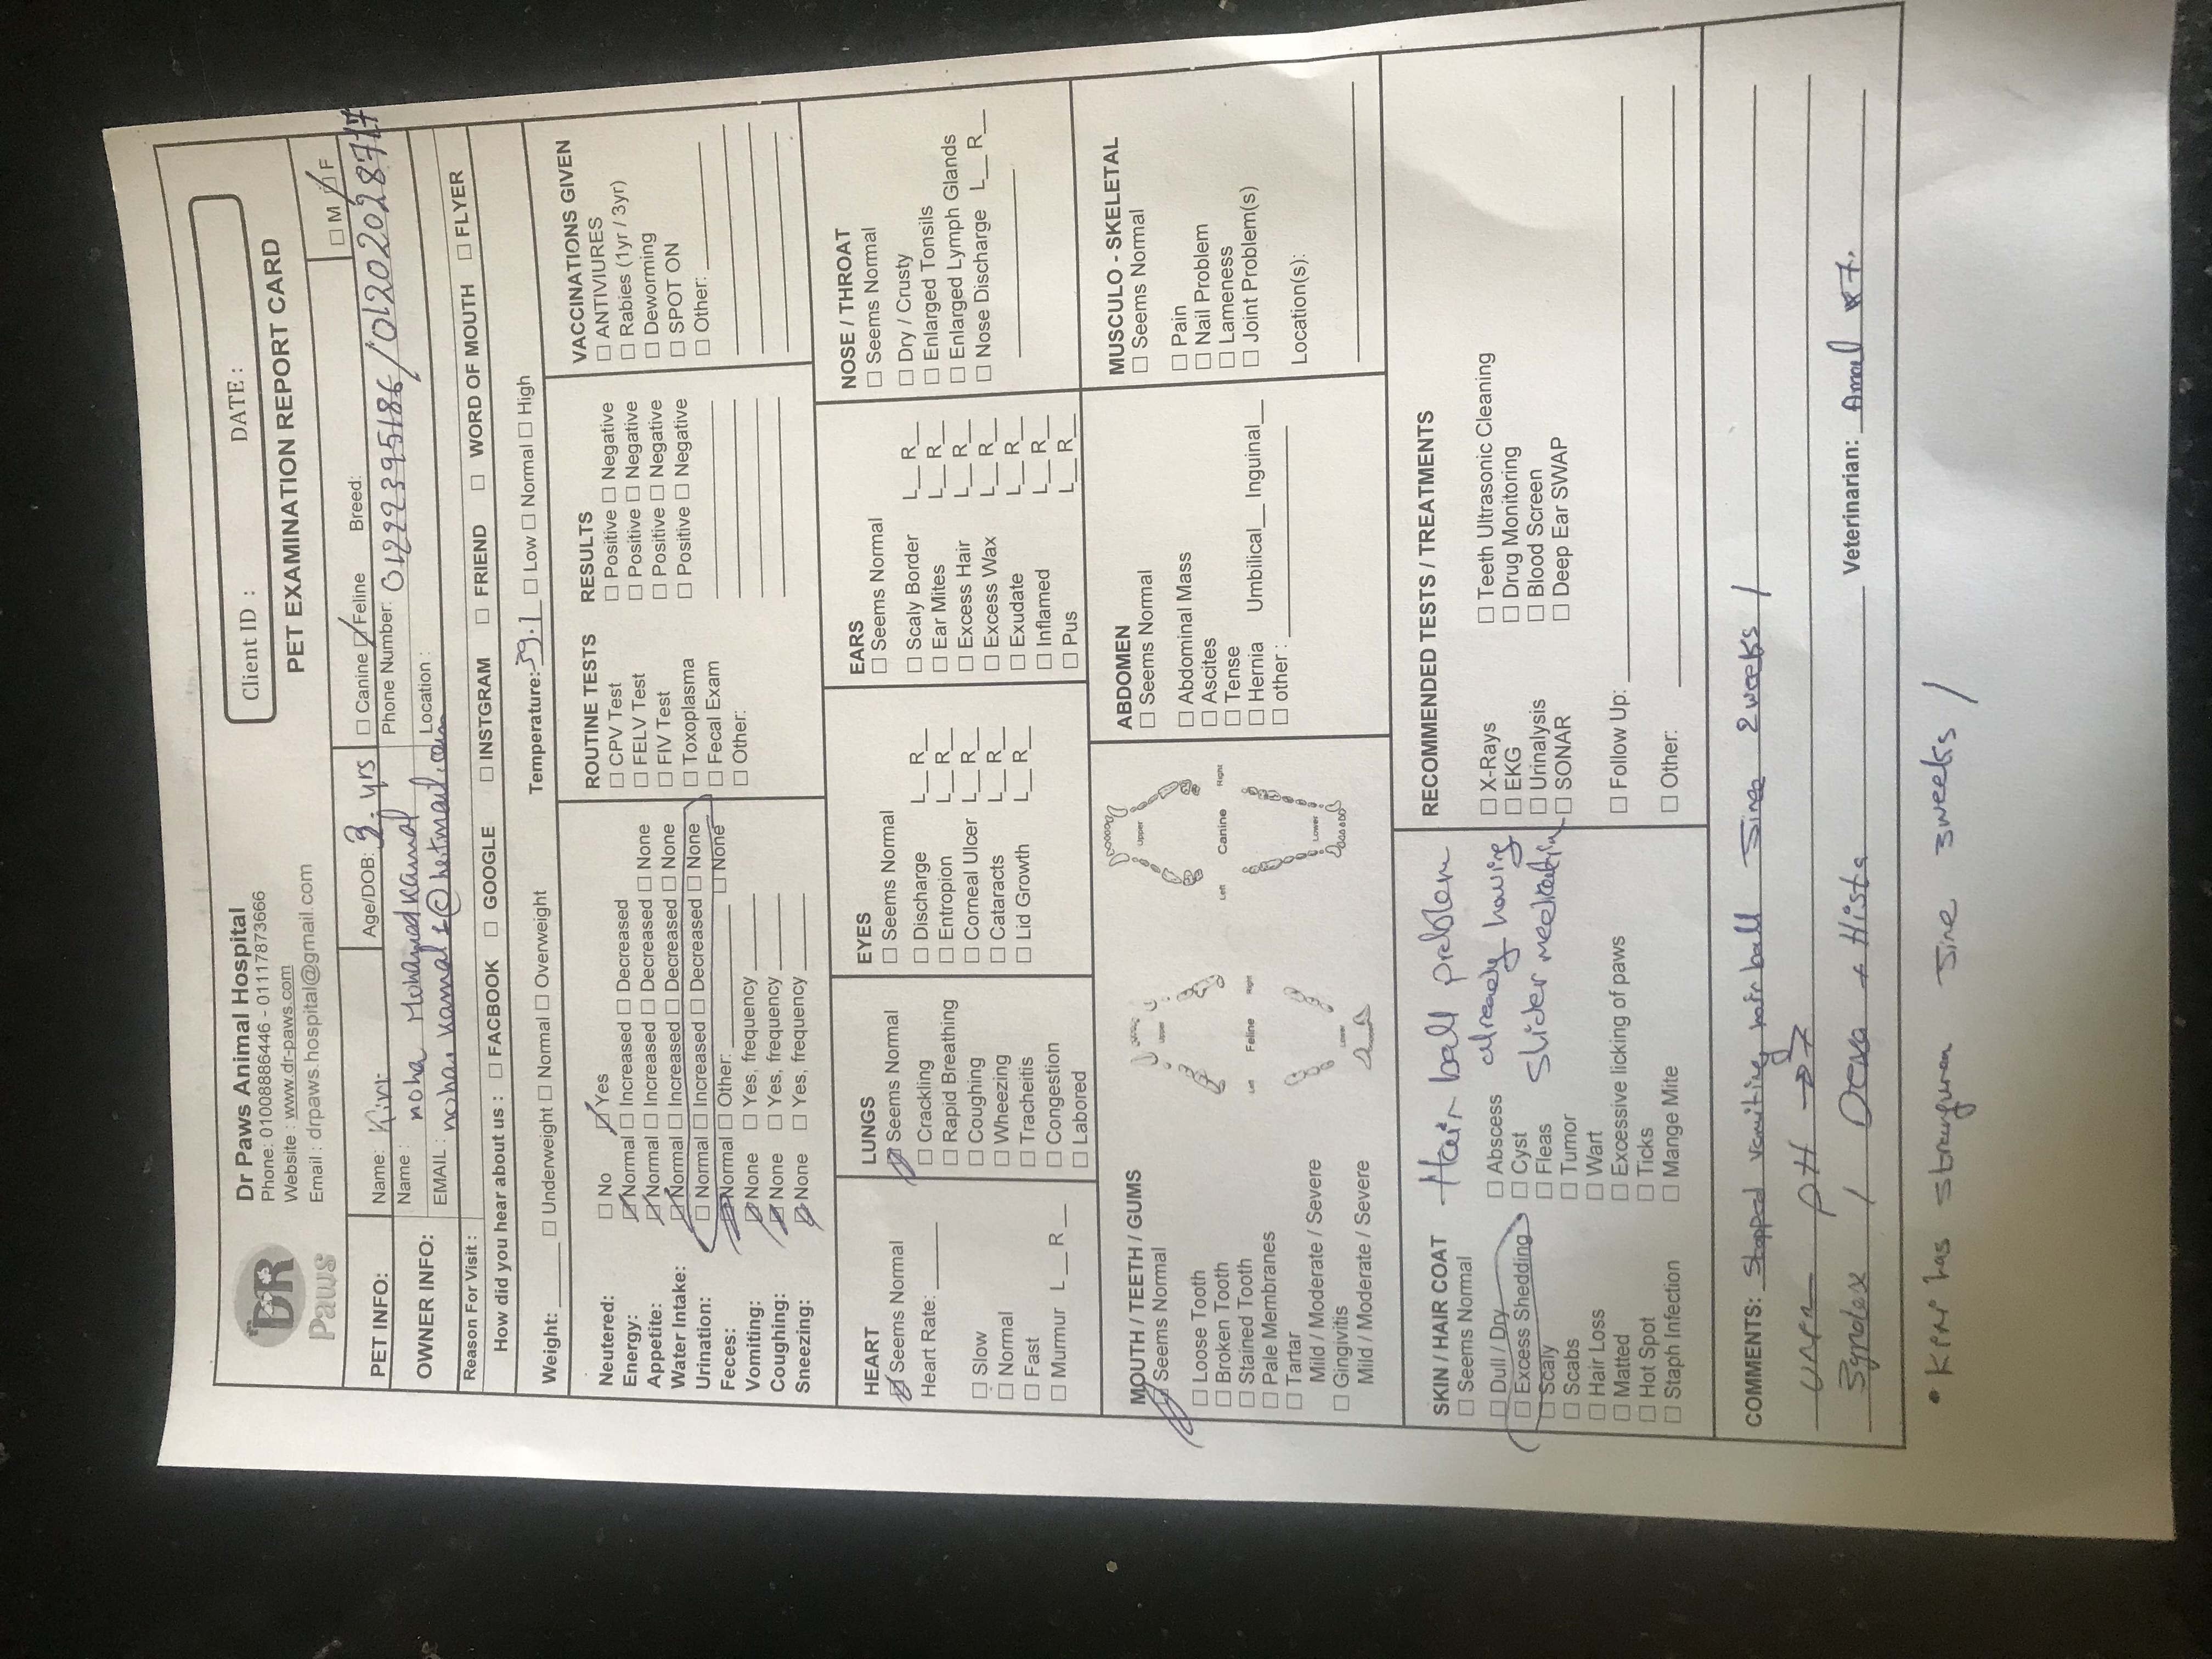 DR
Paws
Dr Paws Animal Hospital
Phone: 01008886446 - 01117873666
Website : www.dr-paws.com
Email : drpaws.hospital@gmail.com
Client ID : DATE :
PET EXAMINATION REPORT CARD
PET INFO: Name: Kivi Age/DOB: 3 yrs ☐ Canine ☑ Feline Breed: ☐ M ☑ F
OWNER INFO: Name : noha Mohamad kamal Phone Number: 01222395186 /
EMAIL : Location :
Reason For Visit :
How did you hear about us : ☐ FACBOOK ☐ GOOGLE ☐ INSTGRAM ☐ FRIEND ☐ WORD OF MOUTH ☐ FLYER
Weight: ☐ Underweight ☐ Normal ☐ Overweight Temperature: 39.1 ☐ Low ☐ Normal ☐ High
Neutered: ☐ No ☑ Yes
Energy: ☑ Normal ☐ Increased ☐ Decreased
Appetite: ☑ Normal ☐ Increased ☐ Decreased ☐ None
Water Intake: ☑ Normal ☐ Increased ☐ Decreased ☐ None
Urination: ☐ Normal ☐ Increased ☐ Decreased ☐ None
Feces: ☑ Normal ☐ Other: ☐ None
Vomiting: ☑ None ☐ Yes, frequency
Coughing: ☑ None ☐ Yes, frequency
Sneezing: ☑ None ☐ Yes, frequency
ROUTINE TESTS RESULTS
☐ CPV Test ☐ Positive ☐ Negative
☐ FELV Test ☐ Positive ☐ Negative
☐ FIV Test ☐ Positive ☐ Negative
☐ Toxoplasma ☐ Positive ☐ Negative
☐ Fecal Exam
☐ Other:
VACCINATIONS GIVEN
☐ ANTIVIURES
☐ Rabies (1yr / 3yr)
☐ Deworming
☐ SPOT ON
☐ Other:
HEART
☑ Seems Normal
Heart Rate:
☐ Slow
☐ Normal
☐ Fast
☐ Murmur L__ R__
LUNGS
☑ Seems Normal
☐ Crackling
☐ Rapid Breathing
☐ Coughing
☐ Wheezing
☐ Tracheitis
☐ Congestion
☐ Labored
EYES
☐ Seems Normal
☐ Discharge L__ R__
☐ Entropion L__ R__
☐ Corneal Ulcer L__ R__
☐ Cataracts L__ R__
☐ Lid Growth L__ R__
EARS
☐ Seems Normal
☐ Scaly Border L__ R__
☐ Ear Mites L__ R__
☐ Excess Hair L__ R__
☐ Excess Wax L__ R__
☐ Exudate L__ R__
☐ Inflamed L__ R__
☐ Pus L__ R__
NOSE / THROAT
☐ Seems Normal
☐ Dry / Crusty
☐ Enlarged Tonsils
☐ Enlarged Lymph Glands
☐ Nose Discharge L__ R__
MOUTH / TEETH / GUMS
☑ Seems Normal
☐ Loose Tooth
☐ Broken Tooth
☐ Stained Tooth
☐ Pale Membranes
☐ Tartar
Mild / Moderate / Severe
☐ Gingivitis
Mild / Moderate / Severe
Upper
Left Feline Right
Lower
Upper
Left Canine Right
Lower
ABDOMEN
☐ Seems Normal
☐ Abdominal Mass
☐ Ascites
☐ Tense
☐ Hernia Umbilical__ Inguinal__
☐ other :
MUSCULO - SKELETAL
☐ Seems Normal
☐ Pain
☐ Nail Problem
☐ Lameness
☐ Joint Problem(s)
Location(s):
SKIN / HAIR COAT Hair ball problem
☐ Seems Normal already having
☐ Dull / Dry ☐ Abscess
☐ Excess Shedding ☐ Cyst
☐ Scaly ☐ Fleas
☐ Scabs ☐ Tumor
☐ Hair Loss ☐ Wart
☐ Matted ☐ Excessive licking of paws
☐ Hot Spot ☐ Ticks
☐ Staph Infection ☐ Mange Mite
RECOMMENDED TESTS / TREATMENTS
☐ X-Rays ☐ Teeth Ultrasonic Cleaning
☐ EKG ☐ Drug Monitoring
☐ Urinalysis ☐ Blood Screen
☐ SONAR ☐ Deep Ear SWAP
☐ Follow Up:
☐ Other:
COMMENTS: Stopped vomiting hair ball Since 2 weeks /
PH → 7
/ Dexa + Hista Veterinarian: Amal
• Kivi has Since 3 weeks /